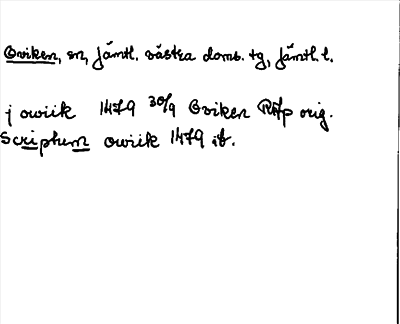 Oviken, sn, Jämtl. västra doms. tg, Jämtl. l.
j owiik 1479 30/9 Oviken RAp orig.
Scriptum owiik 1479 ib.